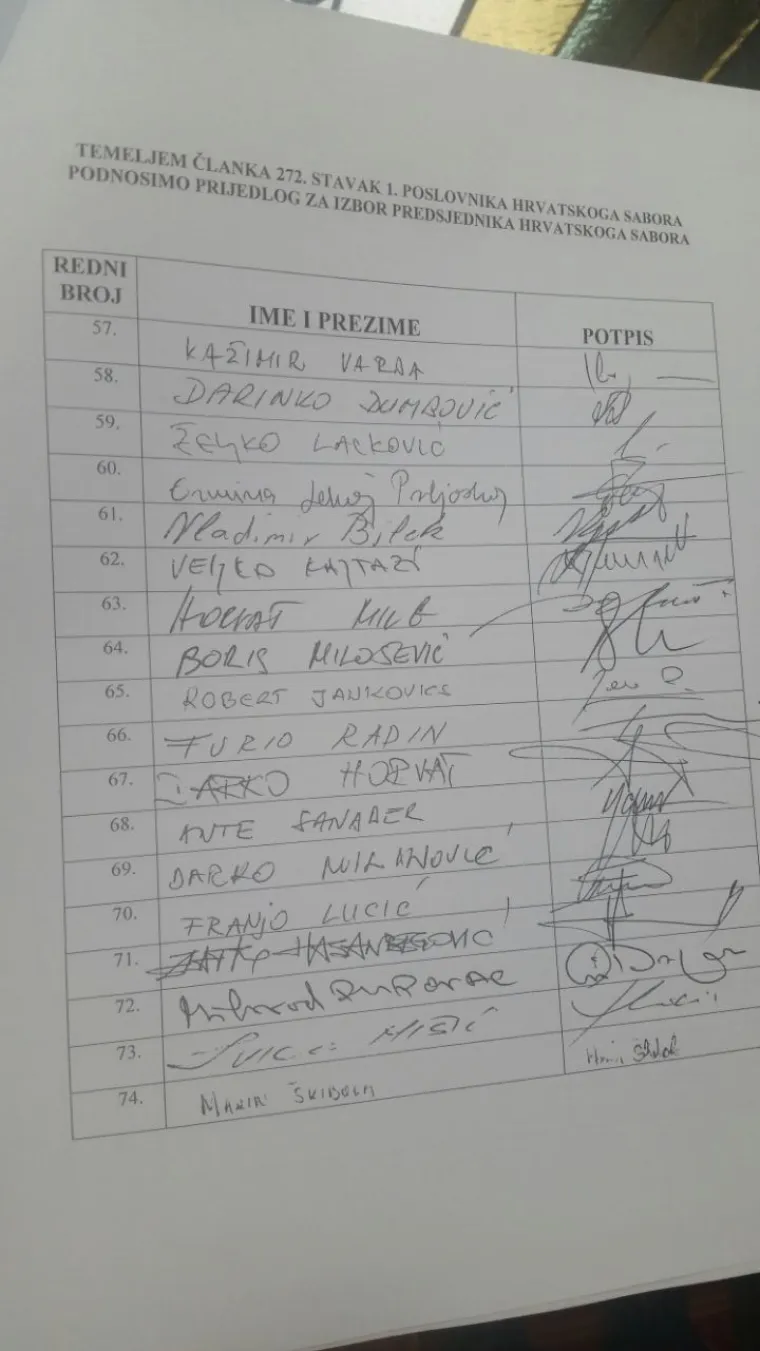 TEMELJEM ČLANKA 272. STAVAK 1. POSLOVNIKA HRVATSKOGA SABORA
PODNOSIMO PRIJEDLOG ZA IZBOR PREDSJEDNIKA HRVATSKOGA SABORA
REDNI BROJ IME I PREZIME POTPIS
57. KAŽIMIR VARDA
58. DARINKO DUMBOVIĆ
59. ŽELJKO LACKOVIĆ
60. Ermina Lekaj Prljaskaj
61. Vladimir Bilek
62. VELJKO KAJTAZI
63. HORVAT MILE
64. BORIS MILOŠEVIĆ
65. ROBERT JANKOVICS
66. FURIO RADIN
67. DARKO HORVAT
68. ANTE SANADER
69. DARKO MILINOVIĆ
70. FRANJO LUCIĆ
71. ZLATKO HASANBEGOVIĆ
72. Milorad PUPOVAC
73. MIŠIĆ
74. MARIN ŠKIBOLA